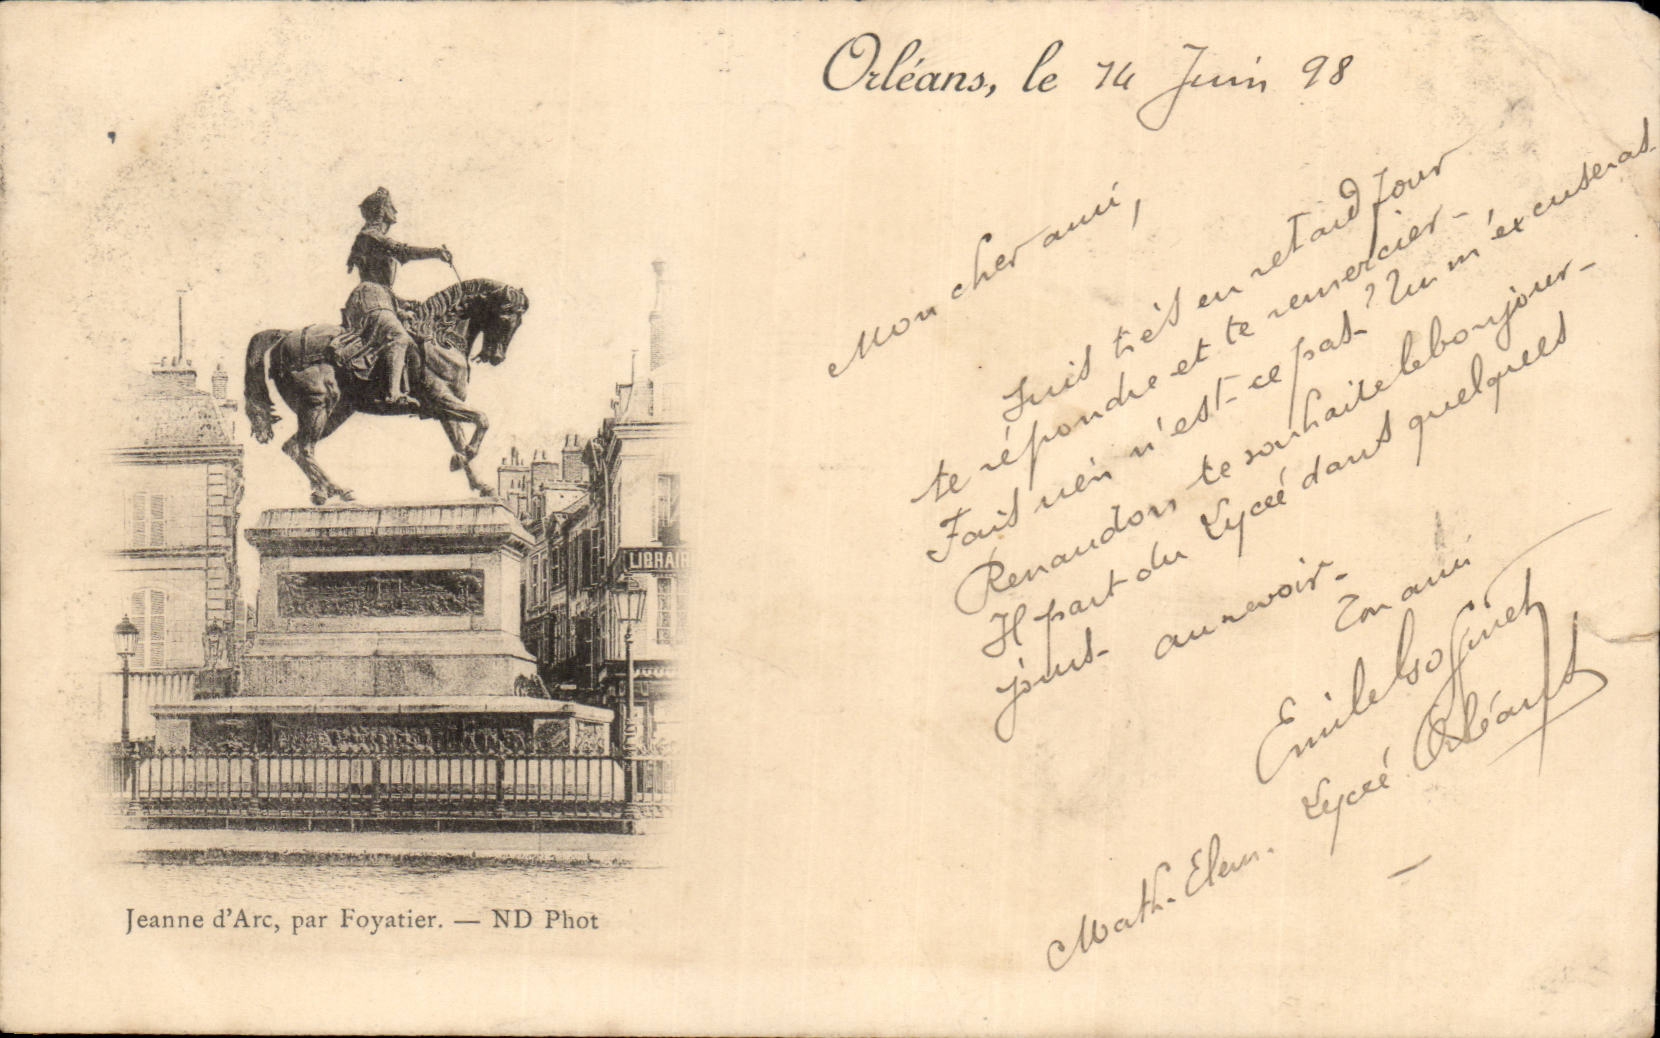 Orléans, le 14 Juin 98
Mon cher ami,
Suis très en retard pour
te répondre et te remercier -
Fais rien n'est-ce pas ? Tu m'excuseras
Renaudon te souhaite le bonjour -
Il part du Lycée dans quelques
jours - au revoir -
Ton ami
Emile
Lycée Orléans
Math-Elem.
LIBRAIR
Jeanne d'Arc, par Foyatier. — ND Phot